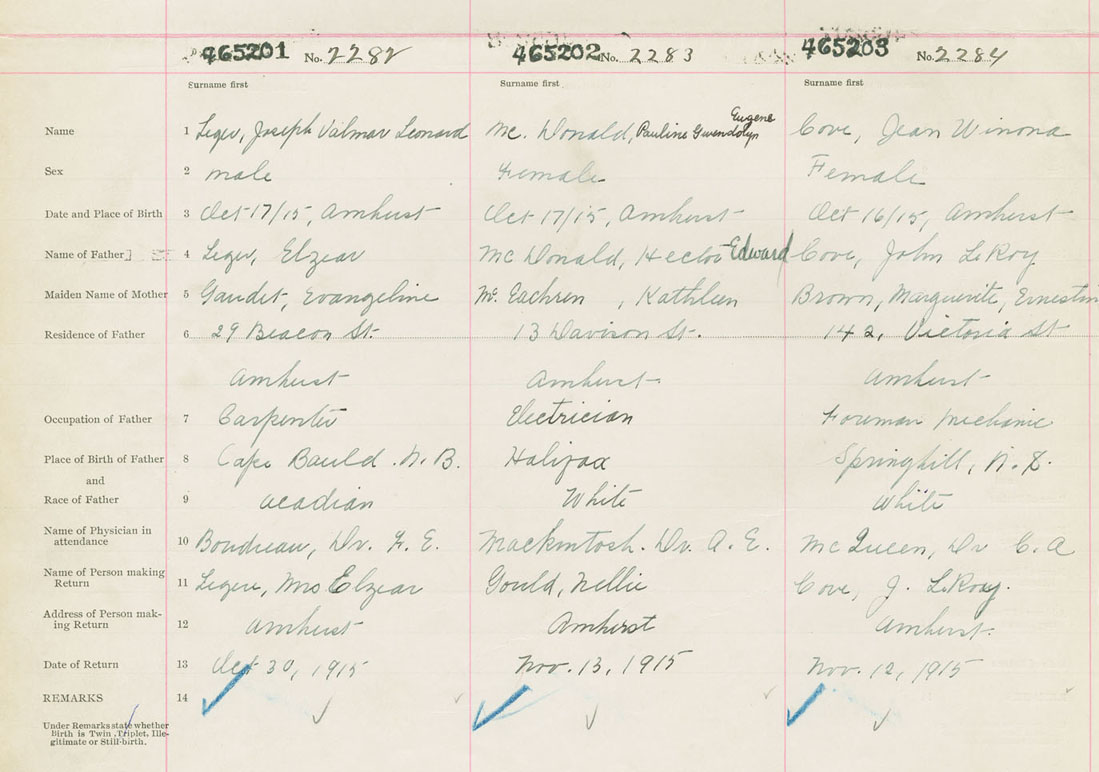 465201 No. 2282 465202 No. 2283 465203 No. 2284
Surname first Surname first Surname first
Eugene
Name 1 Leger, Joseph Valmar Leonard Mc. Donald, Pauline Gwendolyn Cove, Jean Winona
Sex 2 male Female Female
Date and Place of Birth 3 Oct 17/15, Amherst Oct 17/15, Amherst Oct 16/15, Amherst
Name of Father] 4 Leger, Elzear Mc Donald, Hector Edward Cove, John LeRoy
Maiden Name of Mother 5 Gaudet, Evangeline Mc. Eachren , Kathleen Brown, Marguerite, Ernestin
Residence of Father 6 29 Beacon St. 13 Davison St. 142, Victoria St
Amherst Amherst Amherst
Occupation of Father 7 Carpenter Electrician Foreman Mechanic
Place of Birth of Father 8 Cape Bauld. N. B. Halifax Springhill, N. S.
and
Race of Father 9 Acadian White White
Name of Physician in
attendance 10 Boudreau, Dr. F. E. Mackintosh. Dr. A. E. Mc Queen, Dr C. A
Name of Person making
Return 11 Legere, Mrs Elzear Gould, Nellie Cove, J. LeRoy.
Address of Person mak-
ing Return 12 Amherst Amherst Amherst.
Date of Return 13 Oct 30, 1915 Nov. 13, 1915 Nov. 12, 1915
REMARKS 14
Under Remarks state whether
Birth is Twin, Triplet, Ille-
gitimate or Still-birth.